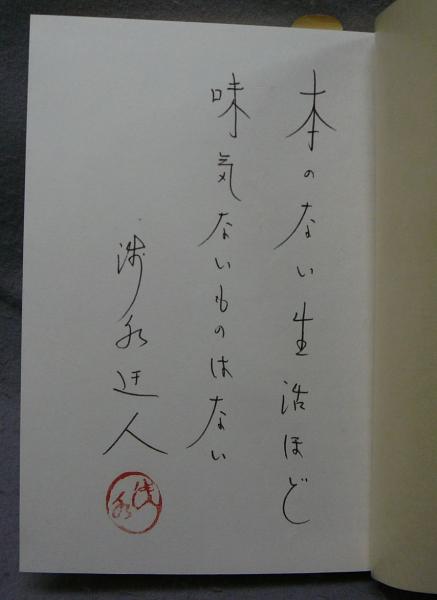 本のない生活ほど
味気ないものはない
浅水迂人
浅水